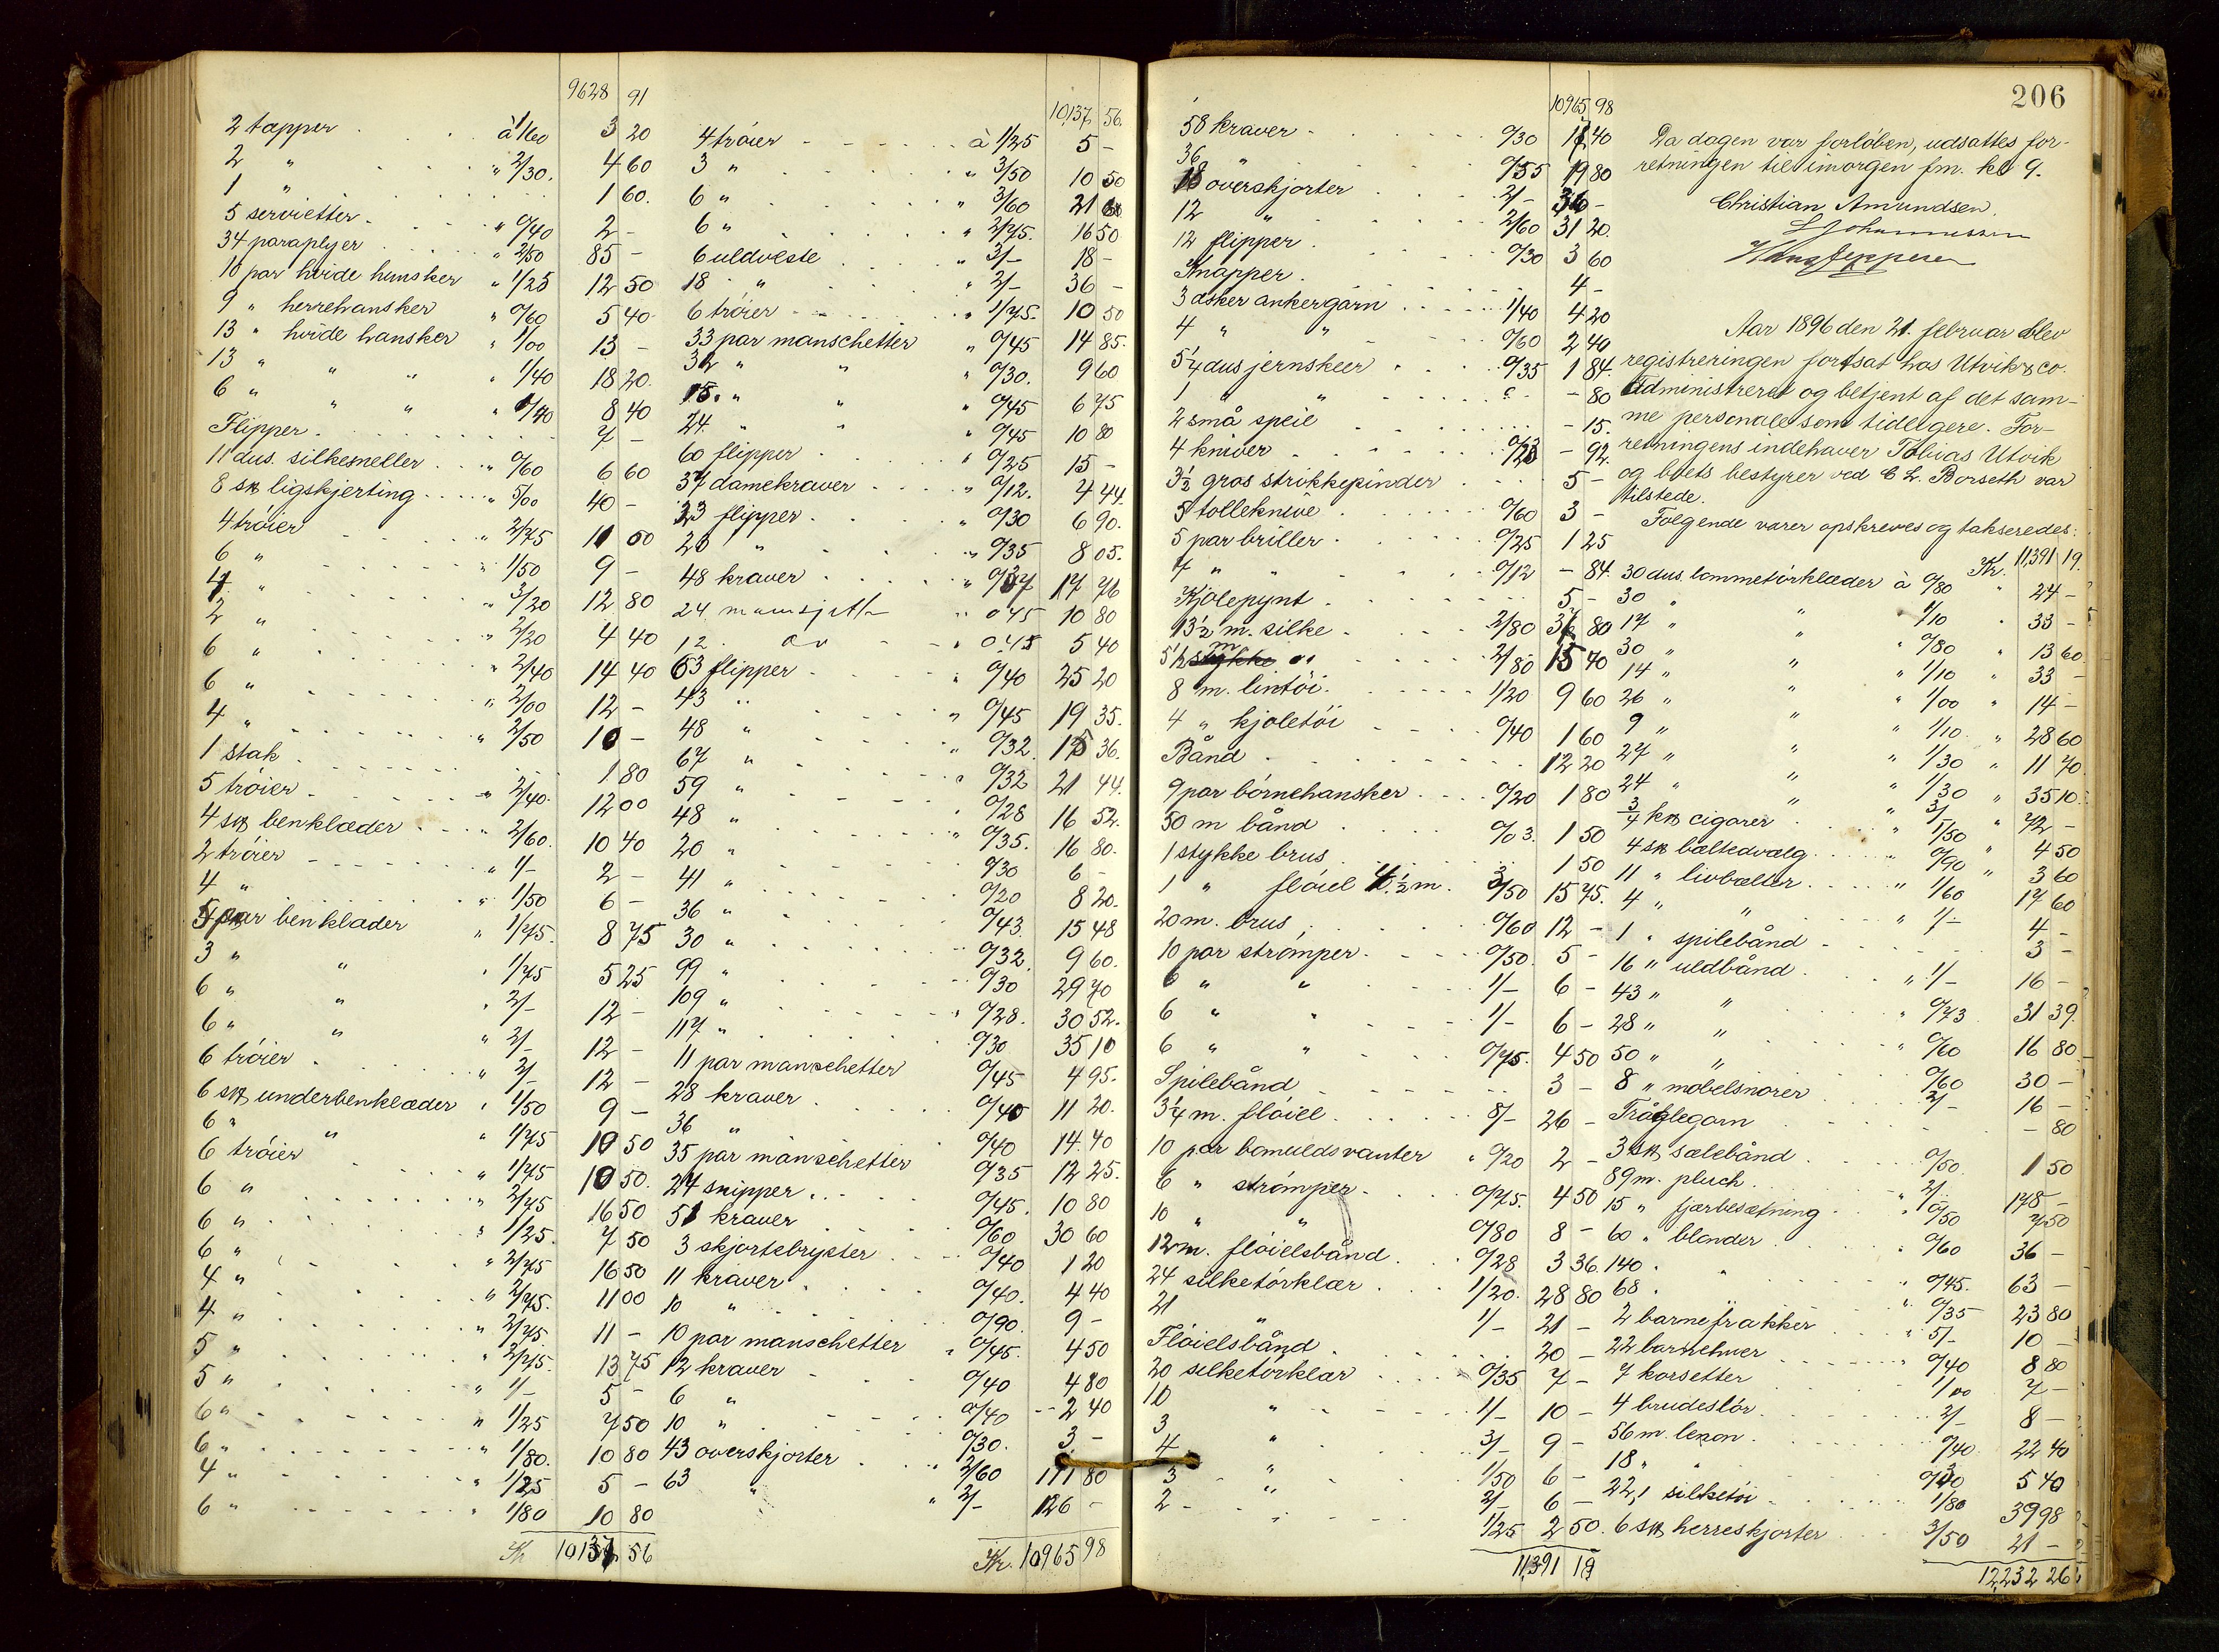 9628 91
2 tæpper . . . à 1/60 3 20
2 " . . . " 2/30. 4 60
1 " . . . 1 60.
5 servietter . " 0/40 2 -
34 paraplyer . . . " 2/50 85 -
10 par hvide hansker " 1/25 12 50
9 " herrehansker " 0/60 5 40
13 " hvide hansker " 1/00 13 -
13 " " " " 1/40 18 20.
6 " " " " 1/40 8 40
Flipper . . . 7 -
11 dus. silkesneller . . " 0/60 6 60
8 stk ligskjerting . . . " 5/00 40 -
4 trøier . . . " 2/75 11 00
6 " . . . " 1/50 9 -
4 " . . . " 3/20 12 80
2 " . . . " 2/20 4 40
6 " . . . " 2/40 14 40
6 " . . . " 2/00 12 -
4 " . . . " 2/50 10 -
1 stak . . . 1 80
5 trøier . . . " 2/40. 12 00
4 stk benklæder . . . " 2/60. 10 40
2 trøier . . . " 1/- 2 -
4 " " 1/50 6 -
5 par benklæder " 1/75. 8 75
3 " " " 1/75 5 25
6 " " " 2/- 12 -
6 " " " 2/- 12 -
6 trøier . . . " 2/- 12 -
6 stk underbenklæder " 1/50 9 -
6 " " " 1/75 10 50
6 trøier " 1/75 10 50.
6 " . . . " 2/75 16 50
6 " . . . " 1/25. 7 50
6 " . . . " 2/75 16 50
4 " . . . " 2/75. 11 00
4 " . . . " 2/75 11 -
5 " . . . " 2/75. 13 75
5 " . . . " 1/- 5 -
6 " . . . " 1/25 7 50
6 " . . . " 1/80. 10 80
4 " . . . " 1/25 5 -
6 " . . . " 1/80 10 80
Kr 10137 56
10,137 56.
4 trøier . . . à 1/25 5 -
3 " . . . " 3/50 10 50
6 " . . . " 3/60 21 60
6 " . . . " 2/75. 16 50
6 uldveste . . . " 3/- 18 -
18 " . . . " 2/- 36 -
6 trøier . . . " 1/75. 10 50
33 par manschetter " 0/45 14 85.
32 " " " 0/30. 9 60
15 " " " 0/45 6 75
24 " " " 0/45 10 80
60 flipper . . . " 0/25 15 -
37 damekraver . . . " 0/12. 4 44.
23 flipper . . . " 0/30 6 90.
20 " . . . " 0/35 8 05.
48 kraver . . . " 0/37 17 76
24 mansjetter " 0 45 10 80
12 . do - " 0.45 5 40
63 flipper . . . " 0/40 25 20
43 " . . . " 0/45 19 35.
48 " . . . " 0/32 15 36.
67 " . . . " 0/32 21 44.
59 " . . . 0/28 16 52.
48 " . . . " 0/35. 16 80.
20 " . . . 0/30 6 -
41 " . . . 0/20 8 20.
36 " . . . 0/43. 15 48
30 " . . . 0/32. 9 60.
99 " . . . 0/30 29 70
109 " . . . " 0/28. 30 52.
117 " . . . 0/30 35 10
11 par manschetter 0/45 4 95.
28 kraver . . . 0/40 11 20.
36 " 0/40 14.40
35 par manschetter 0/35 12 25.
24 snipper . . . 0/45. 10 80
51 kraver . . . 0/60 30 60
3 skjortebryster . . . 0/40 1 20
11 kraver . . . 0/40. 4 40
10 " . . . 0/90. 9 -
10 par manschetter " 0/45. 4 50
12 kraver . . . 0/40 4 80
6 " . . . 0/40 2 40
10 " . . . 0/30. 3 -
43 overskjorter . . . " 2/60 111 80
63 " " 2/- 126 -
Kr. 10965 98
206
10965 98
58 kraver . . . 0/30 17 40
36 " 0/55 19 80
18 overskjorter . . . 2/- 36 -
12 " . . . 2/60 31 20.
12 flipper . . . 0/30 3 60
Knapper . . . 4 -
3 æsker ankergarn . . . 1/40 4 20
4 " " 0/60 2 40
5 1/4 dus jernskeer . . . 0/35 1 84.
1 " " . . . - 80
2 små speil . . . - 15.
4 kniver . . . 0/23 - 92.
3 1/2 gros strikkepinder . . . 5 -
5 tolleknive . . . 0/60 3 -
5 par briller . . . 0/25 1 25
7 " " . . . 0/12 - 84.
Kjolepynt . . . 5 -
13 1/2 m. silke . . . 2/80 37 80
5 1/2 m " . . . 2/80 15 40
8 m. lintøi . . . 1/20 9 60
4 " kjoletøi . . . 0/40 1 60
Bånd . . . 12 20
9 par børnehansker . . . 0/20 1 80
50 m bånd . . . 0/03. 1 50
1 stykke brus . . . 1 50
1 " fløiel 4 1/2 m. 3/50 15 75.
20 m. brus . . . 0/60 12 -
10 par strømper . . . 0/50. 5 -
6 " " . . . 1/- 6 -
6 " " . . . 1/- 6 -
6 " " 0/75. 4 50
Spilebånd . . . 3 -
3 1/4 m. fløiel . . . 8/- 26 -
10 par bomuldsvanter " 0/20 2 -
6 " strømper . . . 0/75. 4 50
10 " " 0/80 8 -
12 m. fløielsbånd . . . 0/28 3 36.
24 silketørklær . . . 1/20. 28 80
21 " 1/- 21 -
Fløielsbånd . . . 20 -
20 silketørklær . . . 0/35 7 -
10 " . . . 1/- 10 -
3 " . . . 3/- 9 -
4 " . . . 1/50 6 -
3 " . . . 2/- 6 -
2 " . . . 1/25 2 50.
11,391 19
Da dagen var forløben, udsattes for-
retningen til imorgen fm. kl 9.
Christian Amundsen.
L Johannessen
Hans Jeppesen
Aar 1896 den 21. februar blev
registreringen fortsat hos Utvik & co.
Administreret og betjent af det sam-
me personale som tidligere. For-
retningens indehaver Tobias Utvik
og boets bestyrer ved C L. Borseth var
tilstede.
Følgende varer opskreves og takseredes:
Kr. 11,391 19.
30 dus. lommetørklæder à 0/80 " 24 -
30 " " 1/10 " 33 -
17 " " " 0/80 " 13 60
30 " " " 1/10 " 33 -
14 " " " 1/00 " 14 -
26 " " " 1/10. " 28 60
9 " " " 1/30 " 11 70
27 " " " 1/30 " 35 10.
24 " " " 3/ " 72 -
3/4 kk cigarer . . . " 1/50 " 4 50
4 stk bæltedvælg . . . " 0/90 " 3 60
11 " livbælter . . . " 1/60 17 60
4 " " " 1/- 4 -
1 " spilebånd . . . 3 -
16 " uldbånd . . . " 1/- 16 -
43 " " " 0/73 31 39.
28 " " " 0/60 16 80
50 " " 0/60 30 -
8 " møbelsnorer . . . 2/- 16 -
Tråklegarn . . . - 80
3 stk sælebånd . . . 0/50. 1 50
89 m. pluch . . . " 2/ 178 -
15 " fjærbesætning . . . " 0/50 7 50
60 " blonder . . . " 0/60 36 -
140 " " . . . " 0/45. 63 -
68 " " 0/35 23 80
2 barnefrakker . . . " 5/- 10 -
22 barnehuer . . . " 0/40 8 80
7 korsetter 1/00 7 -
4 brudeslør . . . 2/- 8 -
56 m. lenon . . . 0/40. 22 40
18 " " . . . 0/30 5 40
22,1 silketøi . . . 1/80 39 98
6 stk herreskjorter . . . 3/50 21 -
12,232 26